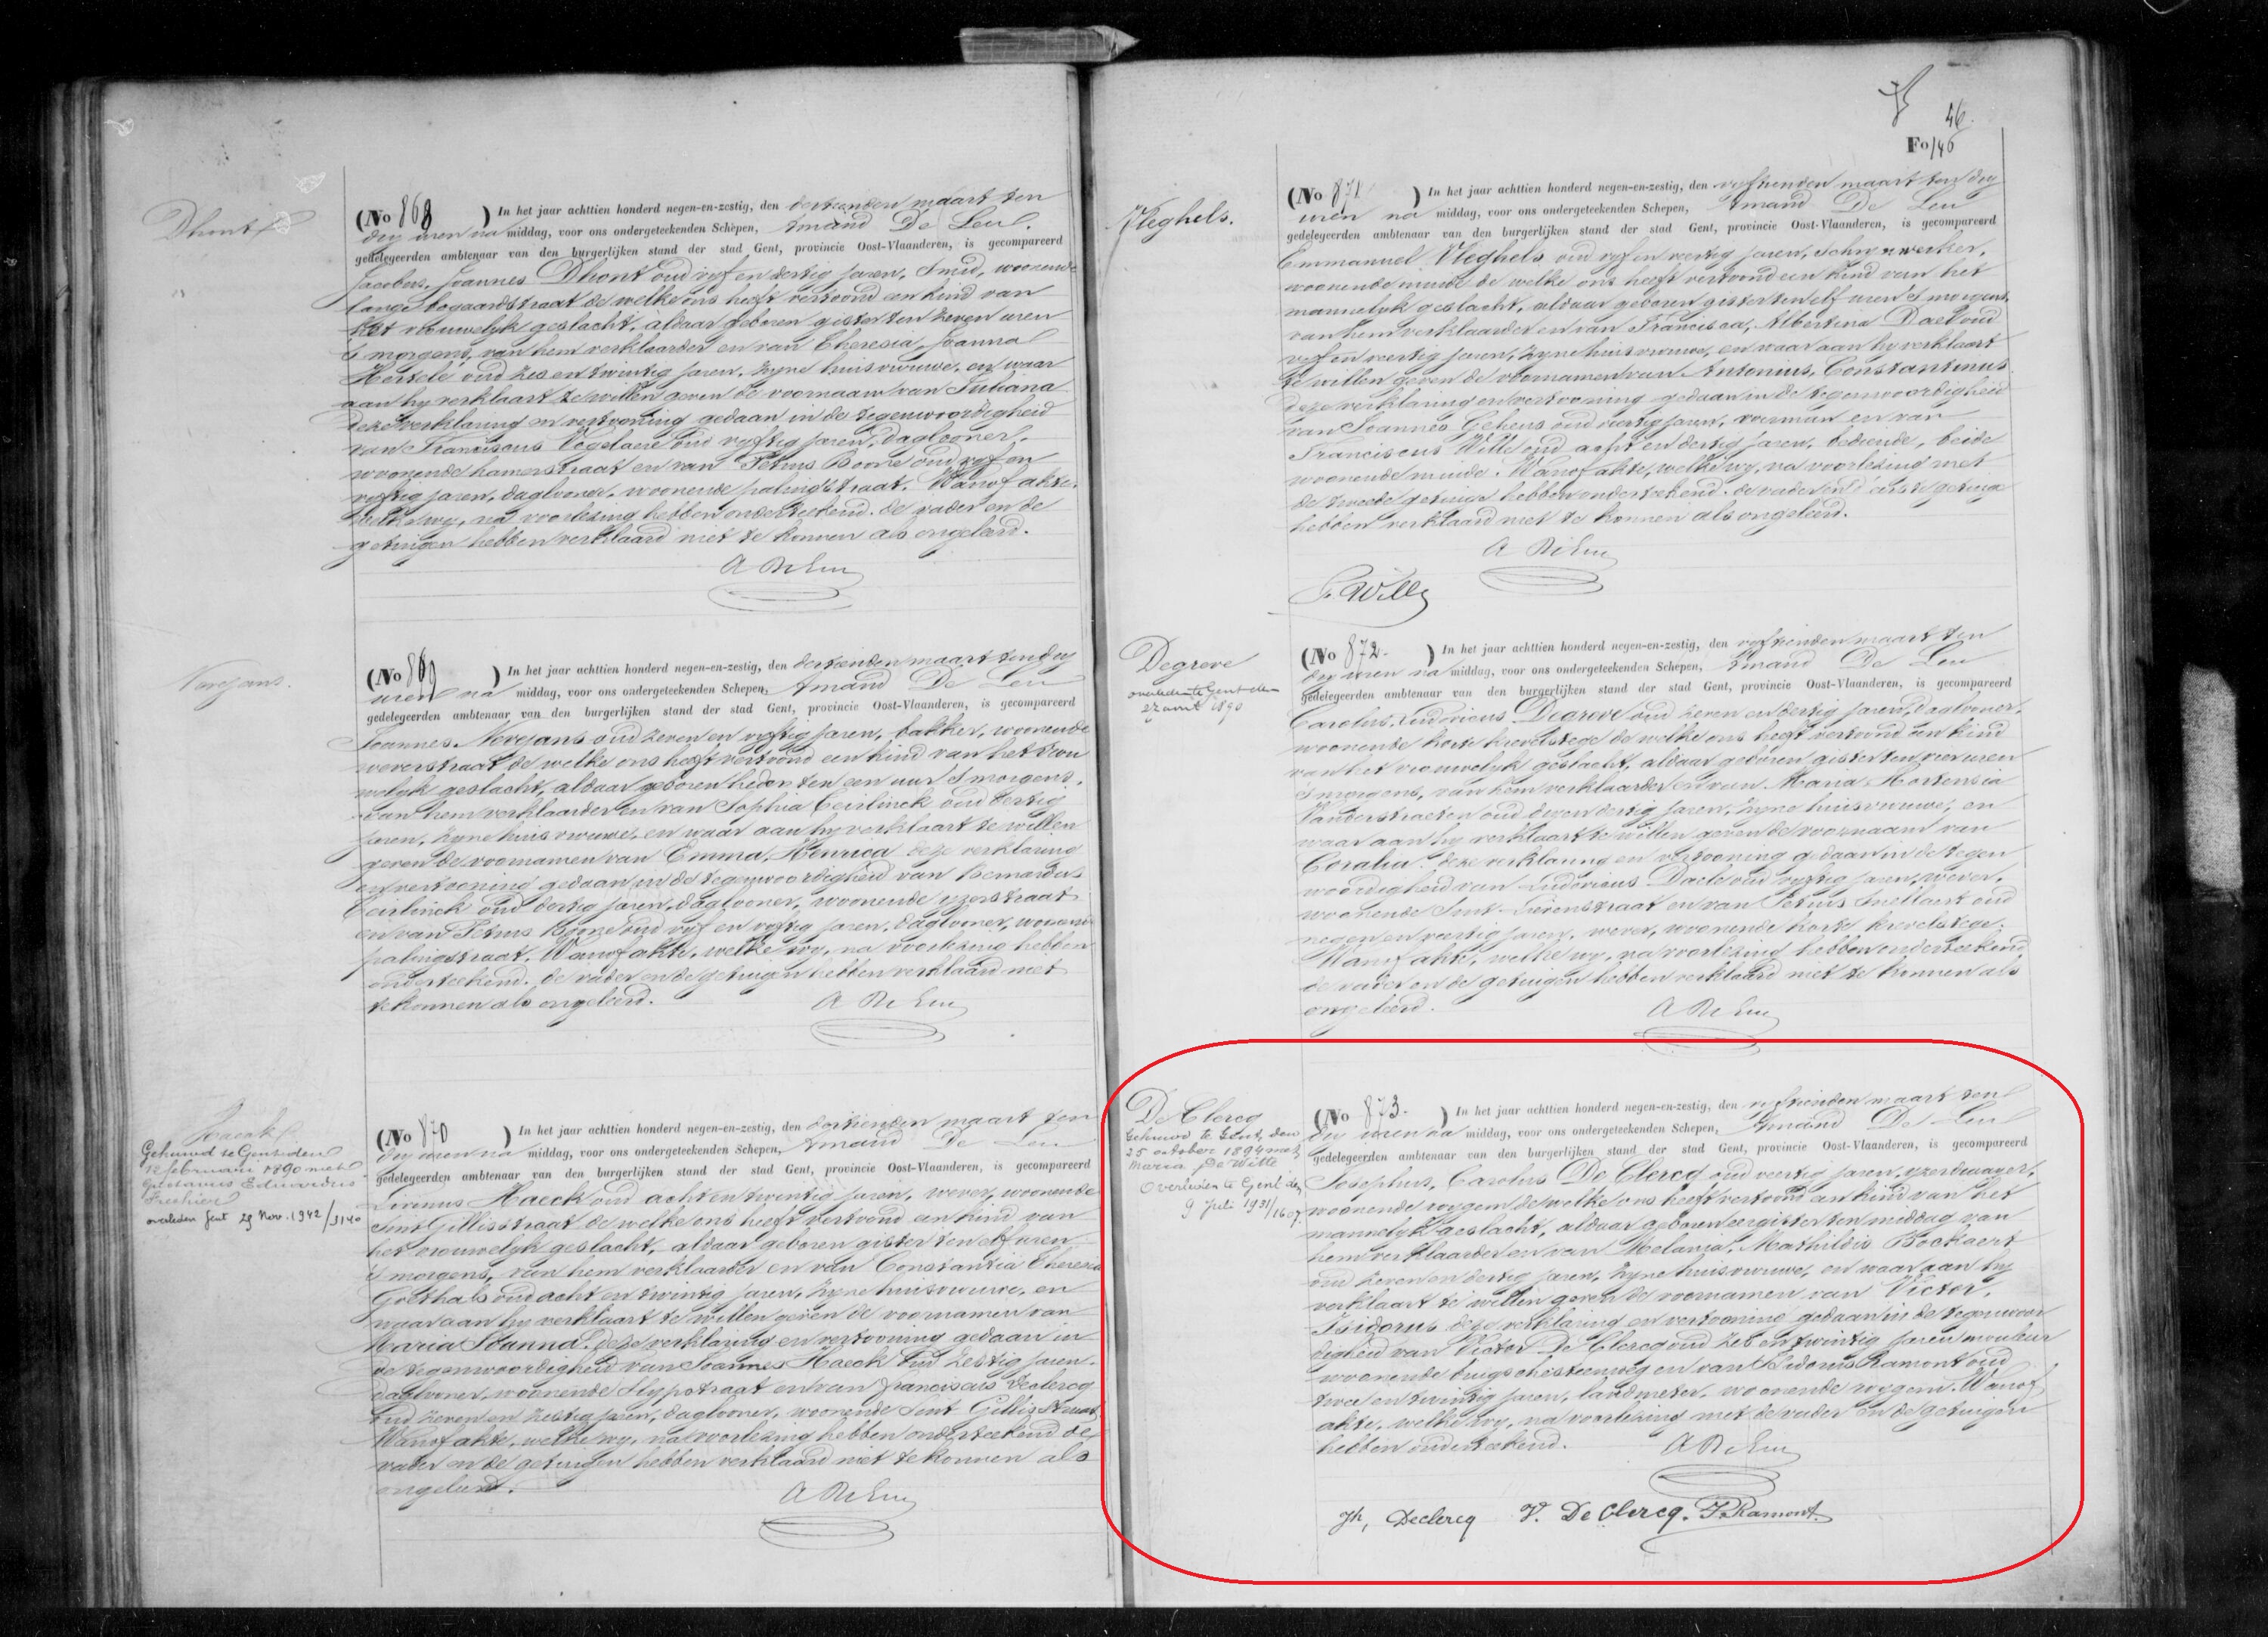 46.
Fo 146
Dhont
(No 868) In het jaar achttien honderd negen-en-zestig, den dertienden maart ten
dry uren na middag, voor ons ondergeteekenden Schepen, Amand De Leu
gedelegeerden ambtenaar van den burgerlijken stand der stad Gent, provincie Oost-Vlaanderen, is gecompareerd
Jacobus, Joannes Dhont oud vyf en dertig jaren, Smid, woonende
lange bogaardstraat de welke ons heeft vertoond een kind van
het vrouwelyk geslacht, aldaar geboren gister ten zeven uren
s'morgens, van hem verklaarder en van Theresia, Joanna
Hertele oud zes en twintig jaren, zyne huisvrouwe, en waar
aan hy verklaart te willen geven de voornaam van Juliana
deze verklaring en vertooning gedaan in de tegenwoordigheid
van Franciscus Vogelaere oud vyftig jaren, daglooner,
woonende hamerstraat en van Petrus Boone oud vyf en
vyftig jaren, daglooner, woonende palingstraat. Wanof akte,
welke wy, na voorlezing hebben onderteekend. de vader en de
getuigen hebben verklaard niet te konnen als ongeleerd.
A De Leu
Nevejans.
(No 869) In het jaar achttien honderd negen-en-zestig, den dertienden maart ten dry
uren na middag, voor ons ondergeteekenden Schepen, Amand De Leu
gedelegeerden ambtenaar van den burgerlijken stand der stad Gent, provincie Oost-Vlaanderen, is gecompareerd
Joannes Nevejans oud zeven en vyftig jaren, bakker, woonende
weverstraat de welke ons heeft vertoond een kind van het vrou
welyk geslacht, aldaar geboren heden ten een uur s'morgens,
van hem verklaarder en van Sophia Teirlinck oud dertig
jaren, zyne huisvrouwe, en waar aan hy verklaart te willen
geven de voornamen van Emma, Henrica deze verklaring
en vertooning gedaan in de tegenwoordigheid van Bernardus
Teirlinck oud dertig jaren, daglooner, woonende yzerstraat
en van Petrus Boone oud vyf en vyftig jaren, daglooner, woonende
palingstraat. Wanof akte, welke wy, na voorlezing hebben
onderteekend. de vader en de getuigen hebben verklaard niet
te konnen als ongeleerd.
A De Leu
Haeck
Gehuwd te Gent den
12 februarii 1890 met
Gustavus Eduardus
overleden Gent 29 Nov. 1942/3140
(No 870) In het jaar achttien honderd negen-en-zestig, den dertienden maart ten
dry uren na middag, voor ons ondergeteekenden Schepen, Amand De Leu
gedelegeerden ambtenaar van den burgerlijken stand der stad Gent, provincie Oost-Vlaanderen, is gecompareerd
Livinus Haeck oud acht en twintig jaren, wever, woonende
Sint Gillisstraat de welke ons heeft vertoond een kind van
het vrouwelyk geslacht, aldaar geboren gister ten elf uren
s'morgens, van hem verklaarder en van Constantia Theresia
Goethals oud acht en twintig jaren, zyne huisvrouwe, en
waar aan hy verklaart te willen geven de voornamen van
Maria Joanna. deze verklaring en vertooning gedaan in
de tegenwoordigheid van Joannes Haeck oud zestig jaren,
daglooner, woonende Slypstraat en van Franciscus Declercq
oud zeven en zestig jaren, daglooner, woonende Sint Gillis Straat
Wanof akte, welke wy, na voorlezing hebben onderteekend de
vader en de getuigen hebben verklaard niet te konnen als
ongeleerd.
A De Leu
Vleghels.
(No 871) In het jaar achttien honderd negen-en-zestig, den vyftienden maart ten dry
uren na middag, voor ons ondergeteekenden Schepen, Amand De Leu
gedelegeerden ambtenaar van den burgerlijken stand der stad Gent, provincie Oost-Vlaanderen, is gecompareerd
Emmanuel Vleghels oud vyf en veertig jaren, schrynwerker,
woonende muide de welke ons heeft vertoond een kind van het
mannelyk geslacht, aldaar geboren gister ten elf uren s'morgens,
van hem verklaarder en van Francisca, Albertina Dael oud
vyf en veertig jaren, zyne huisvrouwe, en waar aan hy verklaart
te willen geven de voornamen van Antonius, Constantinus
deze verklaring en vertooning gedaan in de tegenwoordigheid
van Joannes Geheus oud veertig jaren, voerman en van
Franciscus Wille oud acht en dertig jaren, bediende, beide
woonende muide. Wanof akte, welke wy, na voorlezing met
de tweede getuige hebben onderteekend. de vader en d'eerste getuige
hebben verklaard niet te konnen als ongeleerd.
A De Leu
F. Wille
Degreve
overleden te Gent den
27 april 1890
(No 872.) In het jaar achttien honderd negen-en-zestig, den vyftienden maart ten
dry uren na middag, voor ons ondergeteekenden Schepen, Amand De Leu
gedelegeerden ambtenaar van den burgerlijken stand der stad Gent, provincie Oost-Vlaanderen, is gecompareerd
Carolus, Ludovicus Degreve oud zeven en dertig jaren, daglooner,
woonende korte krevelstege de welke ons heeft vertoond een kind
van het vrouwelyk geslacht, aldaar geboren gister ten vier uren
s'morgens, van hem verklaarder en van Maria Hortensia
Vanderstraeten oud zeven dertig jaren, zyne huisvrouwe, en
waar aan hy verklaart te willen geven de voornaam van
Coralia. deze verklaring en vertooning gedaan in de tegen
woordigheid van Ludovicus Daele oud vyftig jaren, wever,
woonende Sint-Lievenstraat en van Petrus Snellaert oud
negen en veertig jaren, wever, woonende korte krevelstege.
Wanof akte, welke wy, na voorlezing hebben onderteekend
de vader en de getuigen hebben verklaard niet te konnen als
ongeleerd.
A De Leu
De Clercq
Gehuwd te Gent, den
25 october 1894 met
Maria De Witte
Overleden te Gent den
9 Juli 1931/1607.
(No 873.) In het jaar achttien honderd negen-en-zestig, den vyftienden maart ten
dry uren na middag, voor ons ondergeteekenden Schepen, Amand De Leu
gedelegeerden ambtenaar van den burgerlijken stand der stad Gent, provincie Oost-Vlaanderen, is gecompareerd
Josephus, Carolus De Clercq oud veertig jaren, yzerdraayer,
woonende wygem de welke ons heeft vertoond een kind van het
mannelyk geslacht, aldaar geboren eergister ten middag van
hem verklaarder en van Melania, Mathildis Bockaert
oud zeven en dertig jaren, zyne huisvrouwe, en waar aan hy
verklaart te willen geven de voornamen van Victor,
Isidorus deze verklaring en vertooning gedaan in de tegenwoor
digheid van Victor De Clercq oud zes en twintig jaren mouleur
woonende brugschesteenweg en van Isidorus Ramont oud
twee en twintig jaren, landmeter, woonende wygem. Wanof
akte, welke wy, na voorlezing met de vader en de getuigen
hebben onderteekend.
A De Leu
Jh, Declercq V. De Clercq. I. Ramont.